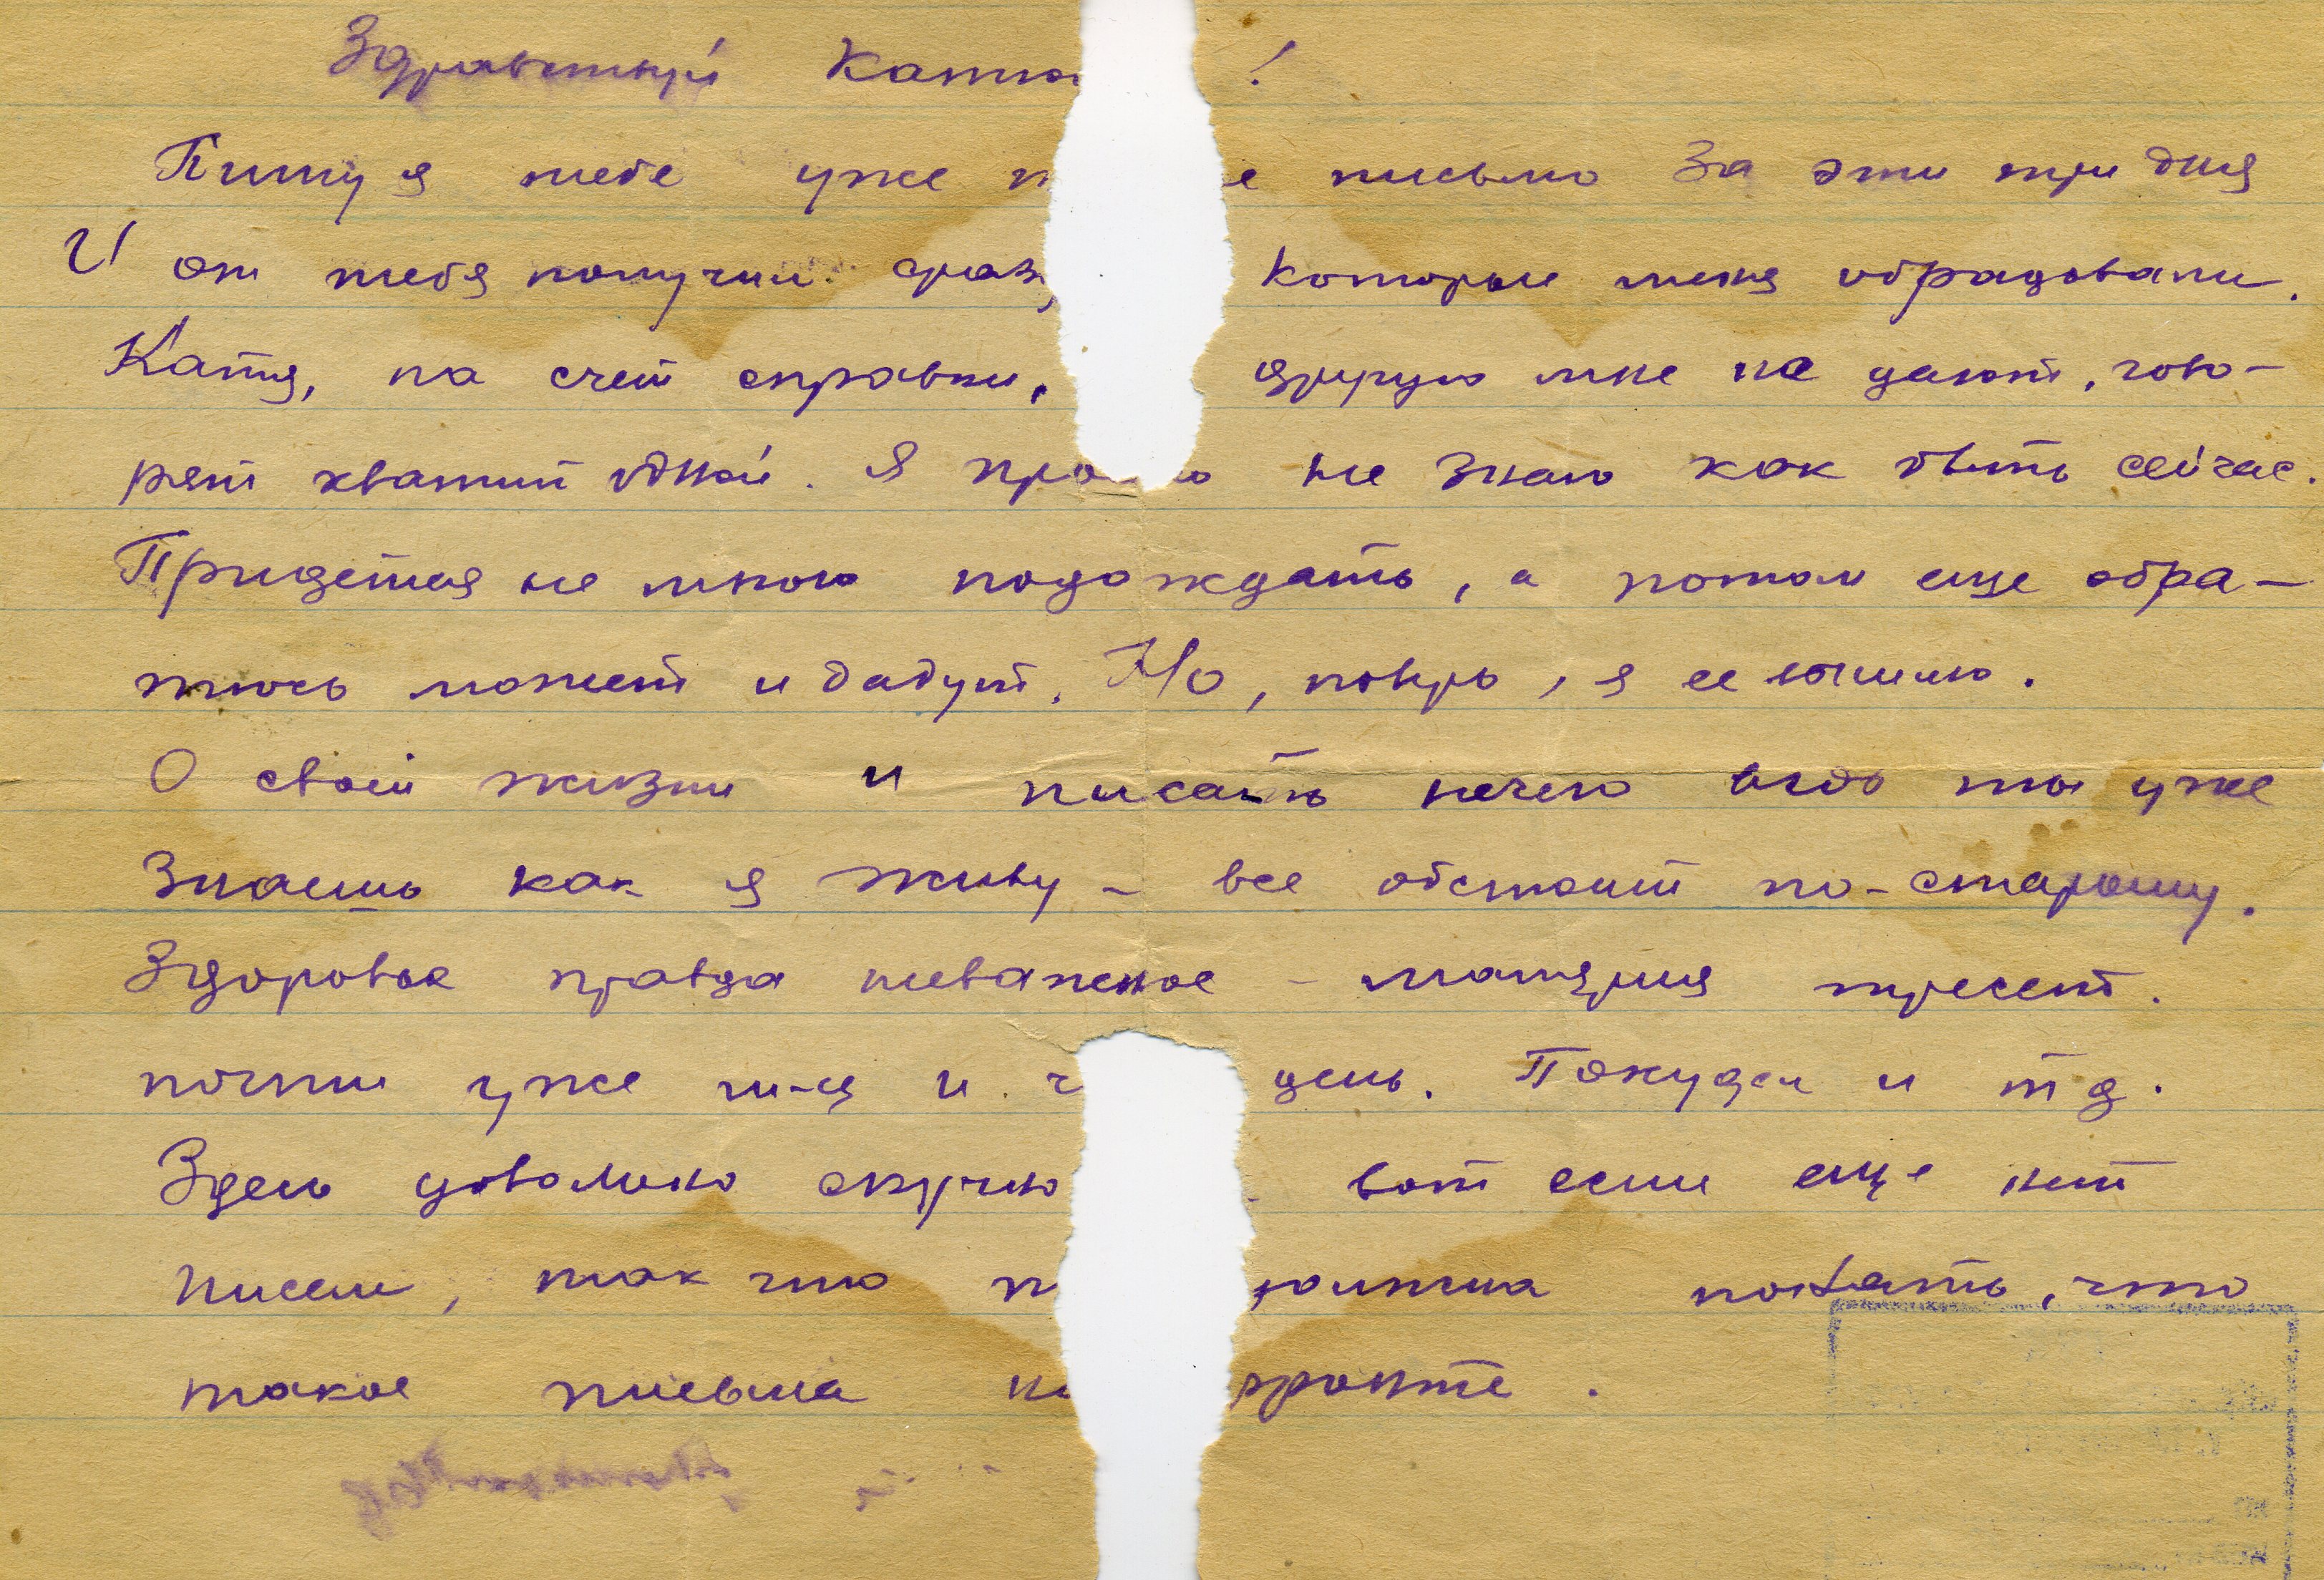 Здравствуй Катю !
Пишу я тебе уже письмо за эти три дня
И от тебя получил сразу которые меня обрадовали.
Катя, на счет справки, другую мне не дают, гово-
рят хватит одной. Я не знаю как быть сейчас.
Придется не много подождать, а потом еще обра-
тюсь может и дадут. Но, поверь, я ее вышлю.
О своей жизни и писать нечего ведь ты уже
знаешь как я живу – все обстоит по-старому.
Здоровье правда неважное – малярия трясет.
почти уже м-ц и день. Похудел и т д.
Здесь довольно скучно вот если еще нет
писем, так что должна понять, что
такое письма на фронте.